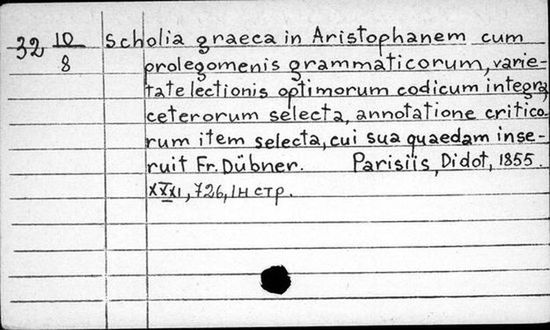 32 10/8 Scholia graeca in Aristophanem cum
prolegomenis grammaticorum, varie-
tate lectionis optimorum codicum integra,
ceterorum selecta, annotatione critico-
rum item selecta, cui sua quaedam inse-
ruit Fr. Dübner. Parisiis, Didot, 1855.
XXXI, 726, 1н стр.